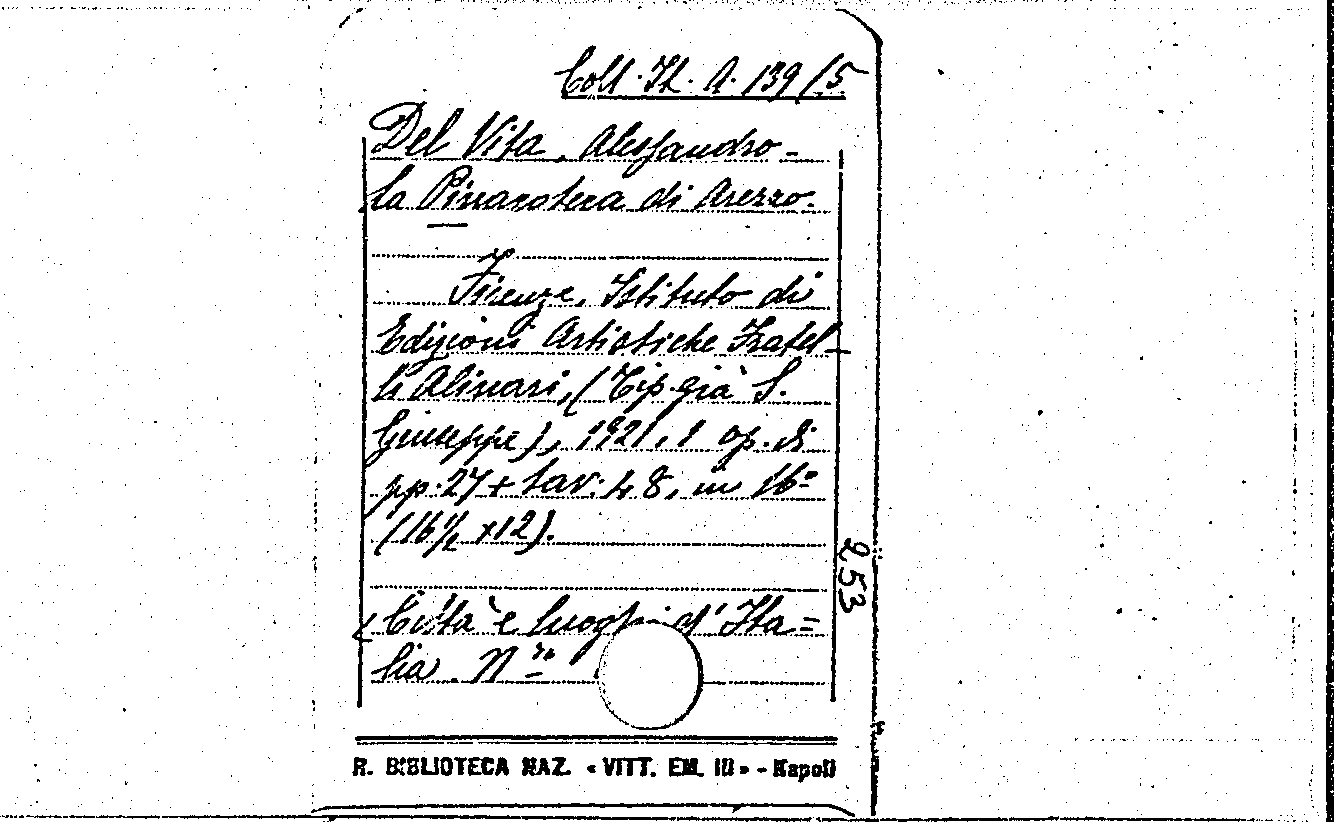 Coll. It. A. 139/5
Del Vita, Alessandro -
La Pinacoteca di Arezzo.
Firenze, Istituto di
Edizioni Artistiche Fratel-
li Alinari, (Tip. già S.
Giuseppe), 1921, 1 op. di
pp. 27 + tav. 48, in 16º
(16½ x 12).
(Città e luoghi d'Ita=
lia. N.ro
253
R. BIBLIOTECA NAZ. « VITT. EM. III » - Napoli